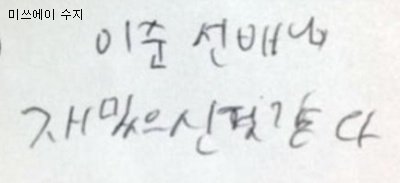 미쓰에이 수지
이준 선배님
재밌으신것같다